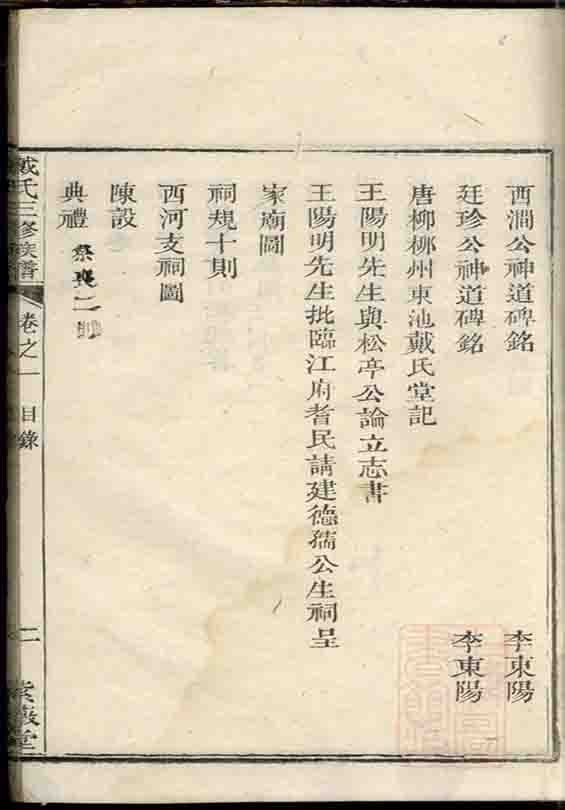 西澗公神道碑銘 李東陽
廷珍公神道碑銘 李東陽
唐柳栁州東池戴氏堂記
王陽明先生與松亭公論立志書
王陽明先生批臨江府耆民請建德孺公生祠呈
家廟圖
祠規十則
西河支祠圖
陳設
典禮 祭喪二
戴氏三修族譜 卷之一 目錄 二